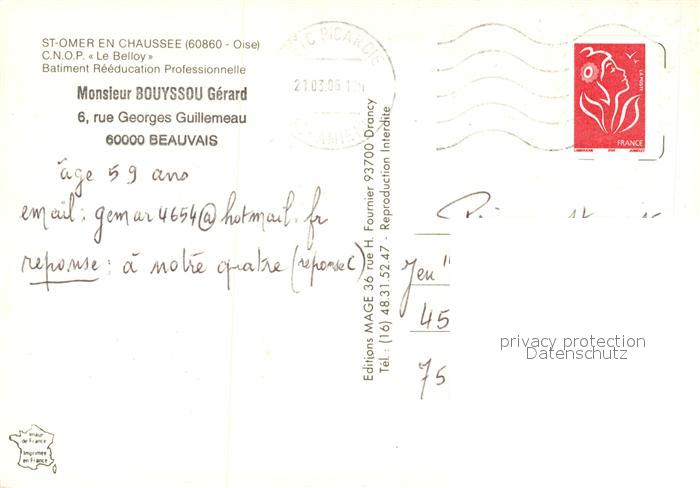 ST-OMER EN CHAUSSEE (60860 - Oise)
C.N.O.P. « Le Belloy »
Batiment Rééducation Professionnelle
Monsieur BOUYSSOU Gérard
6, rue Georges Guillemeau
60000 BEAUVAIS
âge 59 ans
email: gemar4654@hotmail.fr
reponse: à notre quatre (reponse C)
Editions MAGE 36 rue H. Fournier 93700 Drancy
Tél.: (16) 48.31.52.47 - Reproduction Interdite
PICARDIE
21.03.06
LA POSTE
FRANCE
Jeu "
45
75
privacy protection
Datenschutz
Imeur
de France
Imprimée
en France